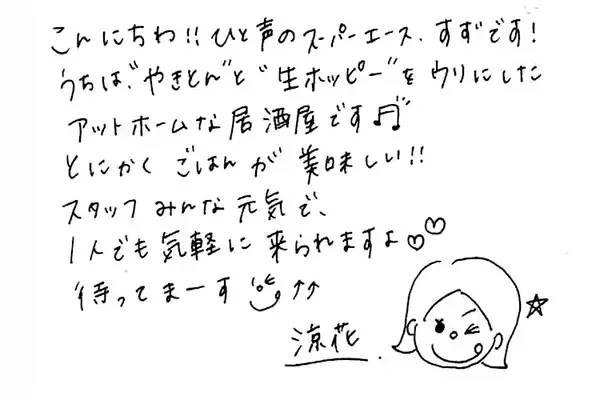 こんにちわ!!ひと声のスーパーエース、すずです!
うちは、"やきとん"と"生ホッピー"をウリにした
アットホームな居酒屋です♫
とにかくごはんが美味しい!!
スタッフみんな元気で、
1人でも気軽に来られますよ♡♡
待ってまーす ↑↑
涼花.